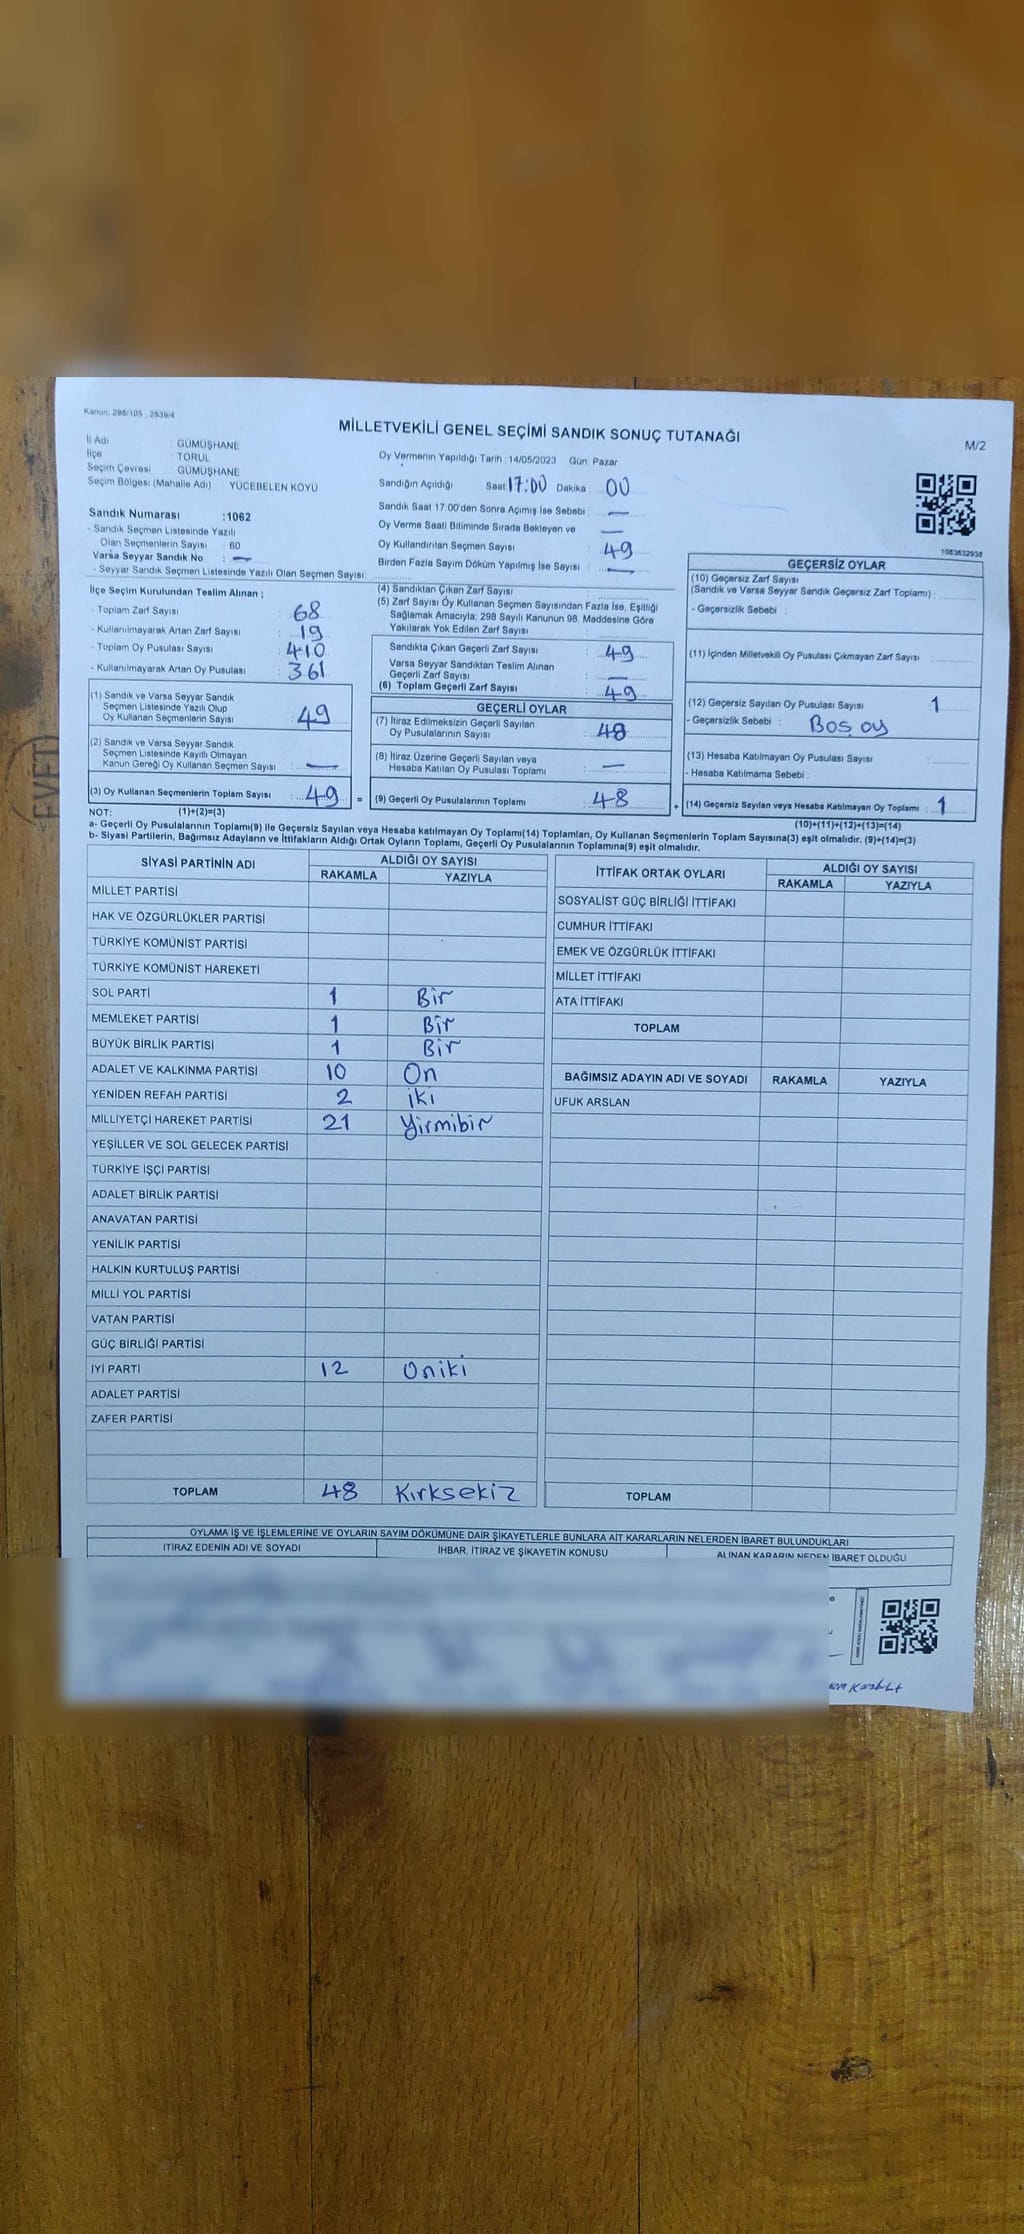 Kanun, 298/105 , 2839/4
MİLLETVEKİLİ GENEL SEÇİMİ SANDIK SONUÇ TUTANAĞI
M/2
İl Adı : GÜMÜŞHANE
İlçe : TORUL
Seçim Çevresi : GÜMÜŞHANE
Seçim Bölgesi (Mahalle Adı) YÜCEBELEN KÖYÜ
Sandık Numarası :1062
- Sandık Seçmen Listesinde Yazılı
Olan Seçmenlerin Sayısı : 60
Varsa Seyyar Sandık No : —
- Seyyar Sandık Seçmen Listesinde Yazılı Olan Seçmen Sayısı:
Oy Vermenin Yapıldığı Tarih : 14/05/2023 Gün: Pazar
Sandığın Açıldığı Saat 17:00 Dakika : 00
Sandık Saat 17:00'den Sonra Açımış İse Sebebi : —
Oy Verme Saati Bitiminde Sırada Bekleyen ve —
Oy Kullandırılan Seçmen Sayısı : 49
Birden Fazla Sayım Döküm Yapılmış İse Sayısı : —
1083632938
İlçe Seçim Kurulundan Teslim Alınan ;
- Toplam Zarf Sayısı : 68
- Kullanılmayarak Artan Zarf Sayısı : 19
- Toplam Oy Pusulası Sayısı : 410
- Kullanılmayarak Artan Oy Pusulası : 361
(1) Sandık ve Varsa Seyyar Sandık
Seçmen Listesinde Yazılı Olup
Oy Kullanan Seçmenlerin Sayısı : 49
(2) Sandık ve Varsa Seyyar Sandık
Seçmen Listesinde Kayıtlı Olmayan
Kanun Gereği Oy Kullanan Seçmen Sayısı : —
(3) Oy Kullanan Seçmenlerin Toplam Sayısı : 49 =
(4) Sandıktan Çıkan Zarf Sayısı :
(5) Zarf Sayısı Oy Kullanan Seçmen Sayısından Fazla İse, Eşitliği
Sağlamak Amacıyla; 298 Sayılı Kanunun 98. Maddesine Göre
Yakılarak Yok Edilen Zarf Sayısı :
Sandıkta Çıkan Geçerli Zarf Sayısı : 49
Varsa Seyyar Sandıktan Teslim Alınan
Geçerli Zarf Sayısı : —
(6) Toplam Geçerli Zarf Sayısı : 49
GEÇERLİ OYLAR
(7) İtiraz Edilmeksizin Geçerli Sayılan
Oy Pusulalarının Sayısı : 48
(8) İtiraz Üzerine Geçerli Sayılan veya
Hesaba Katılan Oy Pusulası Toplamı : —
(9) Geçerli Oy Pusulalarının Toplamı : 48 +
GEÇERSİZ OYLAR
(10) Geçersiz Zarf Sayısı
(Sandık ve Varsa Seyyar Sandık Geçersiz Zarf Toplamı) :
- Geçersizlik Sebebi :
(11) İçinden Milletvekili Oy Pusulası Çıkmayan Zarf Sayısı :
(12) Geçersiz Sayılan Oy Pusulası Sayısı : 1
- Geçersizlik Sebebi : Boş oy
(13) Hesaba Katılmayan Oy Pusulası Sayısı :
- Hesaba Katılmama Sebebi :
(14) Geçersiz Sayılan veya Hesaba Katılmayan Oy Toplamı : 1
NOT: (1)+(2)=(3)
(10)+(11)+(12)+(13)=(14)
a- Geçerli Oy Pusulalarının Toplamı(9) ile Geçersiz Sayılan veya Hesaba katılmayan Oy Toplamı(14) Toplamları, Oy Kullanan Seçmenlerin Toplam Sayısına(3) eşit olmalıdır. (9)+(14)=(3)
b- Siyasi Partilerin, Bağımsız Adayların ve İttifakların Aldığı Ortak Oyların Toplamı, Geçerli Oy Pusulalarının Toplamına(9) eşit olmalıdır.
SİYASİ PARTİNİN ADI ALDIĞI OY SAYISI
RAKAMLA YAZIYLA
MİLLET PARTİSİ
HAK VE ÖZGÜRLÜKLER PARTİSİ
TÜRKİYE KOMÜNİST PARTİSİ
TÜRKİYE KOMÜNİST HAREKETİ
SOL PARTİ 1 Bir
MEMLEKET PARTİSİ 1 Bir
BÜYÜK BİRLİK PARTİSİ 1 Bir
ADALET VE KALKINMA PARTİSİ 10 On
YENİDEN REFAH PARTİSİ 2 iki
MİLLİYETÇİ HAREKET PARTİSİ 21 Yirmibir
YEŞİLLER VE SOL GELECEK PARTİSİ
TÜRKİYE İŞÇİ PARTİSİ
ADALET BİRLİK PARTİSİ
ANAVATAN PARTİSİ
YENİLİK PARTİSİ
HALKIN KURTULUŞ PARTİSİ
MİLLİ YOL PARTİSİ
VATAN PARTİSİ
GÜÇ BİRLİĞİ PARTİSİ
İYİ PARTİ 12 Oniki
ADALET PARTİSİ
ZAFER PARTİSİ
TOPLAM 48 Kırksekiz
İTTİFAK ORTAK OYLARI ALDIĞI OY SAYISI
RAKAMLA YAZIYLA
SOSYALİST GÜÇ BİRLİĞİ İTTİFAKI
CUMHUR İTTİFAKI
EMEK VE ÖZGÜRLÜK İTTİFAKI
MİLLET İTTİFAKI
ATA İTTİFAKI
TOPLAM
BAĞIMSIZ ADAYIN ADI VE SOYADI RAKAMLA YAZIYLA
UFUK ARSLAN
TOPLAM
OYLAMA İŞ VE İŞLEMLERİNE VE OYLARIN SAYIM DÖKÜMÜNE DAİR ŞİKAYETLERLE BUNLARA AİT KARARLARIN NELERDEN İBARET BULUNDUKLARI
İTİRAZ EDENİN ADI VE SOYADI İHBAR, İTİRAZ VE ŞİKAYETİN KONUSU ALINAN KARARIN NEDEN İBARET OLDUĞU
EVET